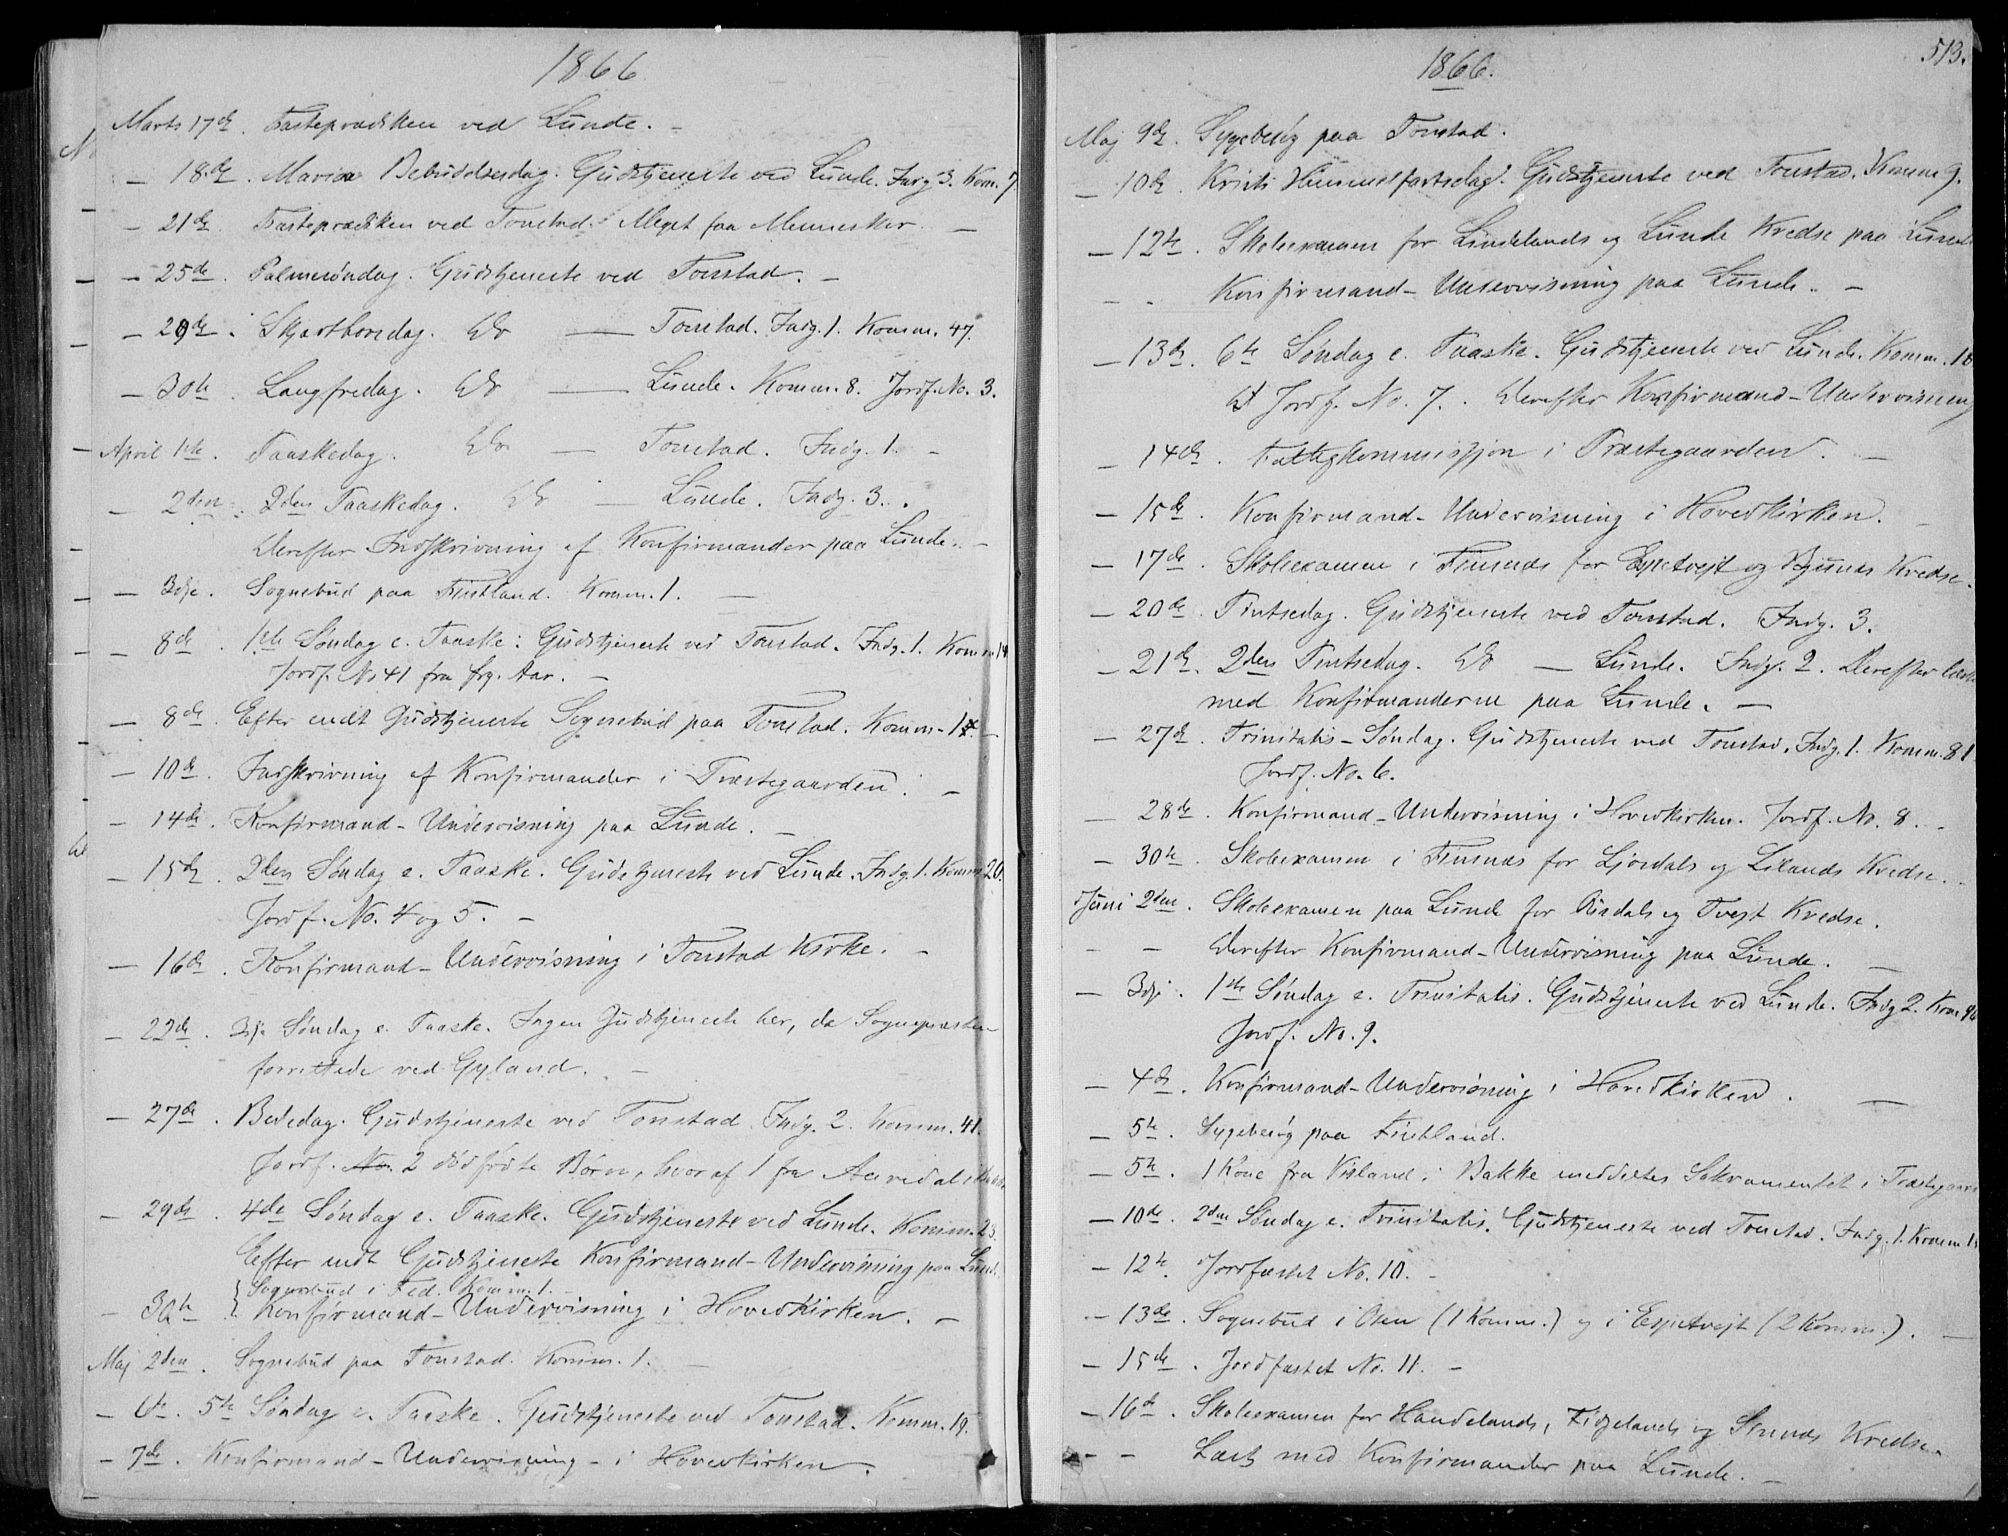 1866.
Marts 17de. Fasteprædiken ved Lunde. –
– 18de. Mariæ Bebudelsesdag. Gudstjeneste ved Lunde. Indg. 3. Kom. 7
– 21de. Fasteprædiken ved Tonstad. Meget faa Mennesker. –
– 25de. Palmesøndag. Gudstjeneste ved Tonstad. –
– 29de. Skjærthorsdag. Do — Tonstad. Indg. 1. Komm. 47.
– 30te. Langfredag. Do — Lunde. Komm. 8. Jordf. No. 3.
April 1ste. Paaskedag. Do — Tonstad. Indg. 1. –
– 2den. 2den Paaskedag. Do — Lunde. Indg. 3.
Derefter Indskrivning af Konfirmander paa Lunde. –
– 3die. Sognebud paa Fintland. Komm. 1. –
– 8de. 1ste Søndag e. Paaske: Gudstjeneste ved Tonstad. Indg. 1. Komm. 14
Jordf. No 41 fra frg. Aar. –
– 8de. Efter endt Gudstjeneste Sognebud paa Tonstad. Komm. 1. –
– 10de. Indskrivning af Konfirmander i Præstegaarden. –
– 14de. Konfirmand-Undervisning paa Lunde. –
– 15de. 2den Søndag e. Paaske. Gudstjeneste ved Lunde. Indg. 1. Komm. 20.
Jordf. No. 4 og 5. –
– 16de. Konfirmand-Undervisning i Tonstad Kirke. –
– 22de. 3die Søndag e. Paaske. Ingen Gudstjeneste her, da Sognepræsten
forrettede ved Gyland. –
– 27de. Bededag. Gudstjeneste ved Tonstad. Indg. 2. Komm. 41.
Jordf. No. 2 dødfødte Børn, hvoraf 1 fra
– 29de. 4de Søndag e. Paaske. Gudstjeneste ved Lunde. Komm. 23.
Efter endt Gudstjeneste Konfirmand-Undervisning paa Lunde.
Sognebud i Fed. Komm. 1. –
– 30te Konfirmand-Undervisning i Hovedkirken. –
Maj 2den. Sognebud paa Tonstad. Komm. 1. –
– 6te. 5te Søndag e. Paaske. Gudstjeneste ved Tonstad. Komm. 19.
– 7de. Konfirmand-Undervisning – i Hovedkirken.
513.
1866.
Maj 9de. Sygebesøg paa Tonstad.
– 10de. Kristi Himmelfartsdag. Gudstjeneste ved Tonstad. Komm 9.
– 12te. Skoleexamen for Lindelands og Lunde Kredse paa Lunde
– - Konfirmand-Undervisning paa Lunde. –
– 13de. 6te Søndag e. Paaske. Gudstjeneste ved Lunde. Komm. 18
Jordf. No. 7. Derefter Konfirmand-Undervisning
– 14de. Fattigkommission i Præstegaarden. –
– 15de. Konfirmand-Undervisning i Hovedkirken. –
– 17de. Skoleexamen i Finsnæs for Espetvejt og Kredse.
– 20de. Pintsedag. Gudstjeneste ved Tonstad. Indg. 3.
– 21de. 2den Pintsedag. Do — Lunde. Indg. 2. Derefter læst
med Konfirmanderne paa Lunde. –
– 27de. Trinitatis-Søndag. Gudstjeneste ved Tonstad. Indg. 1. Komm. 81
Jordf. No. 6.
– 28de. Konfirmand-Undervisning i Hovedkirken. Jordf. No. 8. –
– 30te. Skoleexamen i Finsnæs for Ljosdals og Lilands Kredse.
Juni 2den. Skoleexamen paa Lunde for Aasdals og Tvejt Kredse.
– – Derefter Konfirmand-Undervisning paa Lunde. –
– 3die. 1ste Søndag e. Trinitatis. Gudstjeneste ved Lunde. Indg 2. Kom. 94
Jordf. No. 9.
– 4de. Konfirmand-Undervisning i Hovedkirken. –
– 5te. Sygebesøg paa Fintland.
– 5te. 1 Kone fra Visland i Bakke meddeltes Sakramentet i Præstegaard
– 10de. 2den Søndag e. Trinitatis. Gudstjeneste ved Tonstad. Indg. 1. Komm 1
– 12te. Jordfæstet No. 10. –
– 13de. Sognebud i Osen (1 Komm.) og i Espetvejt (2 Komm.). –
– 15de. Jordfæstet No. 11. –
– 16de. Skoleexamen for Haudelands, Fidjelands og Kredse.
– – Læst med Konfirmander paa Lunde. –